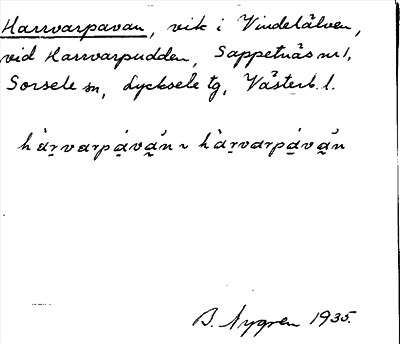 Harrvarpavan, vik i Vindelälven,
vid Harrvarpudden, Sappetnäs nr 1,
Sorsele sn, Lycksele tg, Västerb. l.
hàr̥varpá̤vå̤̀n ~ hàr̤varpá̤vå̤̀n
B. Nygren 1935.